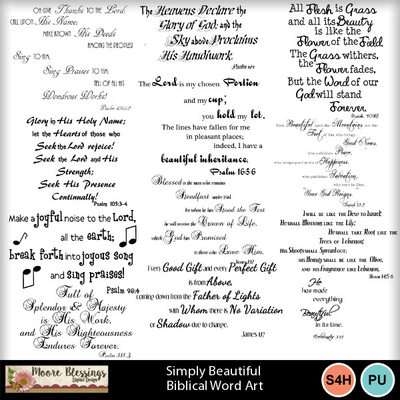 Oh give Thanks to the Lord,
call upon His Name;
Make known His Deeds
among the peoples!
Sing to Him,
Sing Praises to Him;
Tell of all His
Wondrous Works!
Glory in His Holy Name;
let the Hearts of those who
Seek the Lord rejoice!
Seek the Lord and His
Strength;
Seek His Presence
Continually!
Psalm 105:3-4
Make a joyful noise to the Lord,
all the earth;
break forth into joyous song
and sing praises!
Psalm 98:4
Full of
Splendor & Majesty
is His Work,
and His Righteousness
Endures Forever.
Psalm 111:3
The Heavens Declare the
Glory of God; and the
Sky above Proclaims
His Handiwork.
The Lord is my chosen Portion
and my cup;
you hold my lot.
The lines have fallen for me
in pleasant places;
indeed, I have a
beautiful inheritance.
Psalm 16:5-6
Blessed is the man who Remains
Steadfast under trial,
for when he has Stood the Test
he will receive the Crown of Life,
which God has Promised
to those who Love Him.
Every Good Gift and every Perfect Gift
is from Above,
coming down from the Father of Lights
with Whom there is No Variation
or Shadow due to change.
James 1:17
All Flesh is Grass
and all its Beauty
is like the
Flower of the Field.
The Grass withers,
the Flower fades,
But the Word of our
God will stand
Forever.
How Beautiful upon the Mountains are the
Feet of him who brings
Good News,
who publishes Peace,
who brings good news of Happiness,
who publishes Salvation,
who says to Zion,
Your God Reigns.
I will be like the Dew to Israel;
He shall Blossom like the Lily;
He shall take Root like the
Trees of Lebanon;
His Shoots shall Spread out;
his Beauty shall be like the Olive,
and his Fragrance like Lebanon.
Hosea 14:5-6
He
has made
everything
Beautiful
in its time.
Moore Blessings
Digital Design
Simply Beautiful
Biblical Word Art
S4H
PU